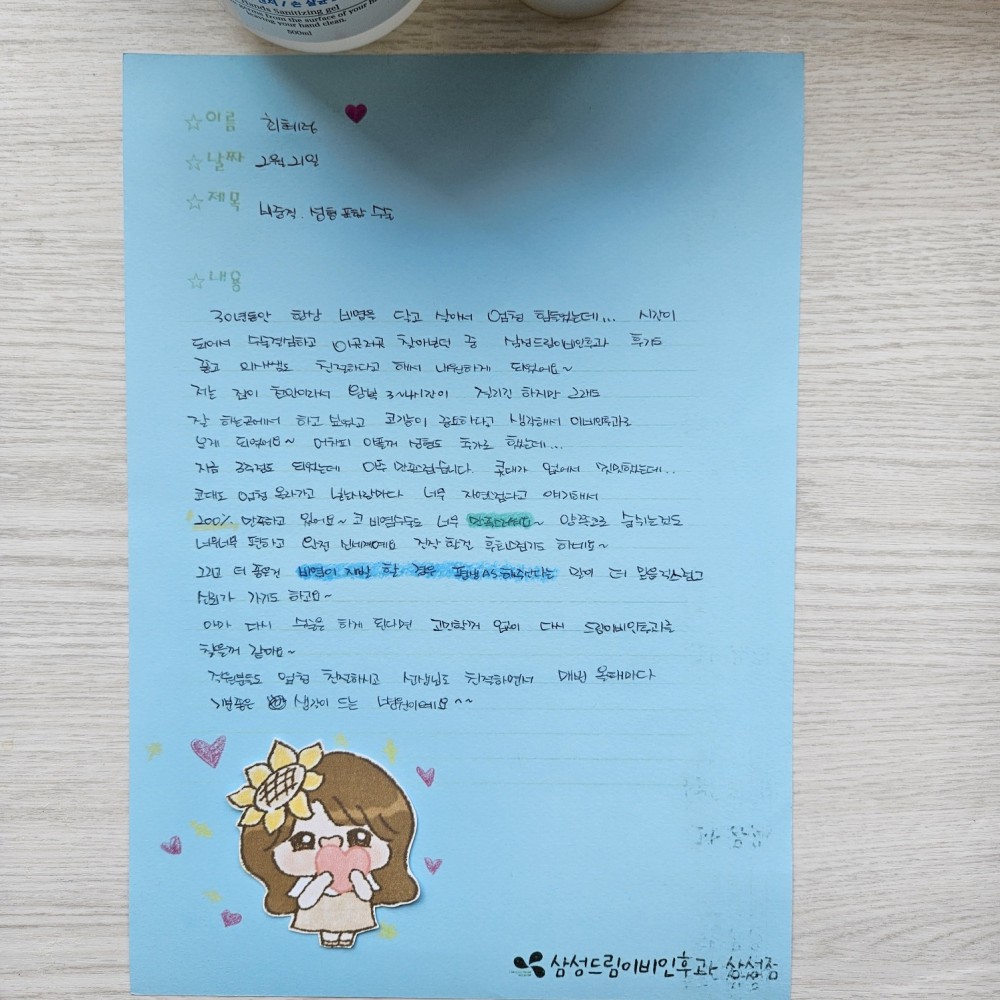 Hands Sanitizing gel
germs from the surface of your ha
leaving your hand clean.
500ml
☆이름 최혜정
☆날짜 2월 21일
☆제목 비중격. 성형 포함 수술
☆내용
30년동안 항상 비염을 달고 살아서 엄청 힘들었는데... 시간이
되어서 수술결심하고 이곳저곳 찾아보던 중 삼성드림이비인후과 후기도
좋고 의사쌤도 친절하다고 해서 내원하게 되었어요~
저는 집이 천안이라서 왕복 3~4시간이 걸리긴 하지만 그래도
잘 하는곳에서 하고 싶었고 코기능이 중요하다고 생각해서 이비인후과로
오게 되었어요~ 어차피 아플꺼 성형도 추가로 했는데...
지금 3주정도 되었는데 아주 만족스럽습니다. 콧대가 없어서 밋밋했는데..
코대도 엄청 올라가고 보는사람마다 너무 자연스럽다고 얘기해서
200% 만족하고 있어요~ 코 비염수술도 너무 만족스러워요~ 양쪽으로 숨쉬는것도
너무너무 편하고 완전 신세계예요 진작 할걸 후회스럽기도 하네요~
그리고 더 좋은건 비염이 재발 할 경우 평생AS 해주신다는 말이 더 믿음직스럽고
신뢰가 가기도 하고요~
아마 다시 수술을 하게 된다면 고민할꺼 없이 다시 드림이비인후과를
찾을꺼 같아요~
직원분들도 엄청 친절하시고 선생님도 친절하셔서 매번 올때마다
기분좋은 생각이 드는 병원이에요^^
삼성드림이비인후과 삼성점